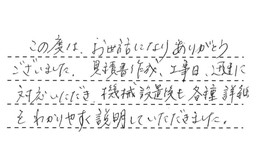 この度は、お世話になりありがとう
ございました。見積書作成、工事日、迅速に
対応いただき、機械設置後も各種詳細
をわかりやすく説明していただきました。